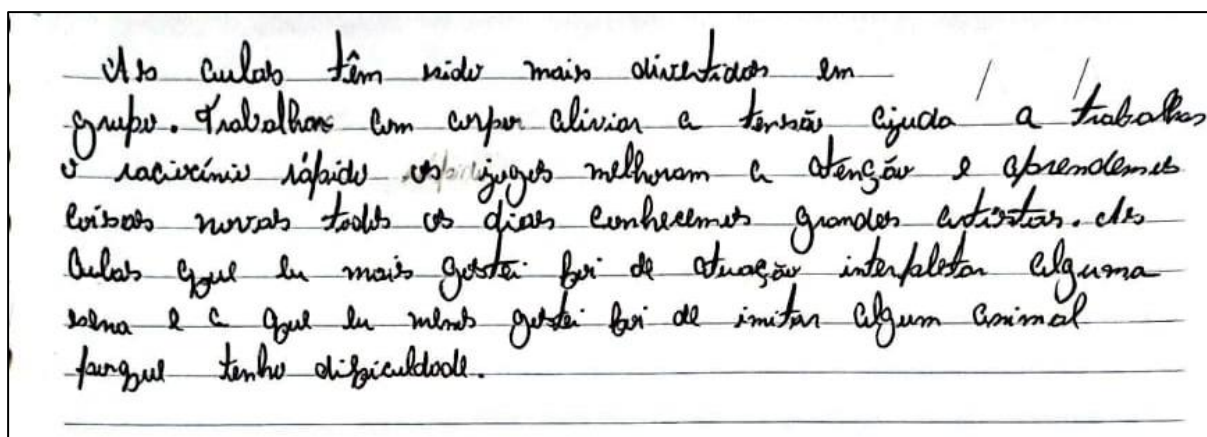 As aulas têm sido mais divertidas em
grupo. Trabalhar com corpo aliviar a tensão ajuda a trabalhar
o raciocínio rápido os jogos melhoram a atenção e aprendemos
coisas novas todos os dias conhecemos grandes artistas. As
aulas que eu mais gostei foi de atuação interpletar alguma
sena e a que eu menos gostei foi de imitar algum animal
porque tenho dificuldade.